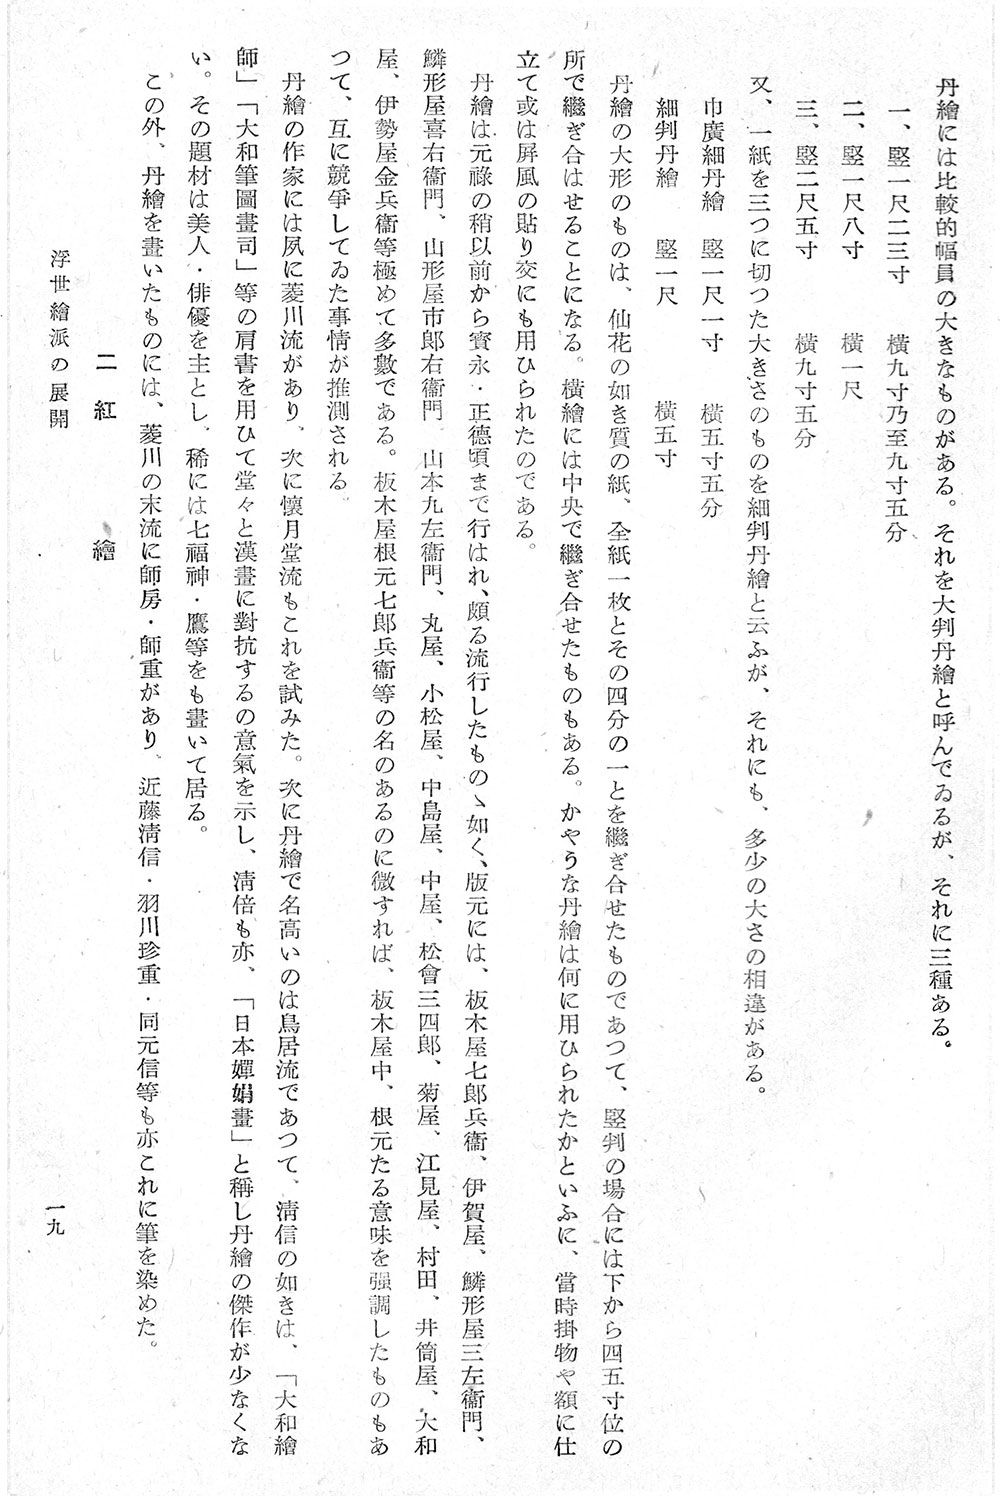 丹繪には比較的幅員の大きなものがある。それを大判丹繪と呼んでゐるが、それに三種ある。
一、竪一尺二三寸　橫九寸乃至九寸五分
二、竪一尺八寸　橫一尺
三、竪二尺五寸　橫九寸五分
又、一紙を三つに切つた大きさのものを細判丹繪と云ふが、それにも、多少の大さの相違がある。
巾廣細丹繪　竪一尺一寸　橫五寸五分
細判丹繪　竪一尺　橫五寸
丹繪の大形のものは、仙花の如き質の紙、全紙一枚とその四分の一とを繼ぎ合せたものであつて、竪判の場合には下から四五寸位の
所で繼ぎ合はせることになる。橫繪には中央で繼ぎ合せたものもある。かやうな丹繪は何に用ひられたかといふに、當時掛物や額に仕
立て或は屛風の貼り交にも用ひられたのである。
丹繪は元祿の稍以前から寳永・正德頃まで行はれ、頗る流行したものゝ如く、版元には、板木屋七郎兵衞、伊賀屋、鱗形屋三左衞門、
鱗形屋喜右衞門、山形屋市郎右衞門、山本九左衞門、丸屋、小松屋、中島屋、中屋、松會三四郎、菊屋、江見屋、村田、井筒屋、大和
屋、伊勢屋金兵衞等極めて多數である。板木屋根元七郎兵衞等の名のあるのに徵すれば、板木屋中、根元たる意味を强調したものもあ
つて、互に競爭してゐた事情が推測される。
丹繪の作家には夙に菱川流があり、次に懷月堂流もこれを試みた。次に丹繪で名高いのは鳥居流であつて、淸信の如きは、「大和繪
師」「大和筆圖畫司」等の肩書を用ひて堂々と漢畫に對抗するの意氣を示し、淸倍も亦、「日本嬋娟畫」と稱し丹繪の傑作が少なくな
い。その題材は美人・俳優を主とし、稀には七福神・鷹等をも畫いて居る。
この外、丹繪を畫いたものには、菱川の末流に師房・師重があり、近藤淸信・羽川珍重・同元信等も亦これに筆を染めた。
二　紅　繪
浮世繪派の展開
一九